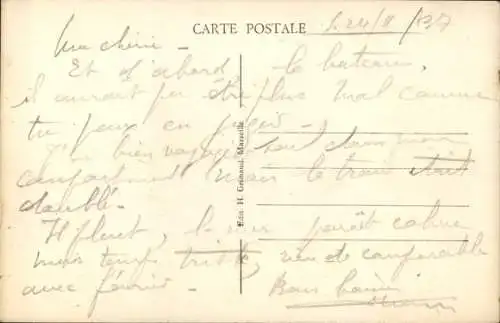 CARTE POSTALE
24/II/37
Ma chérie -
Et d'abord, le bateau,
il aurait pu être plus mal comme
tu peux en juger -
bien voyagé seul dans mon
compartiment mais le train était
doublé.
Il pleut, la mer paraît calme
mais temps triste, rien de comparable
avec février.
Bons baisers
Edit. H. Grimaud, Marseille